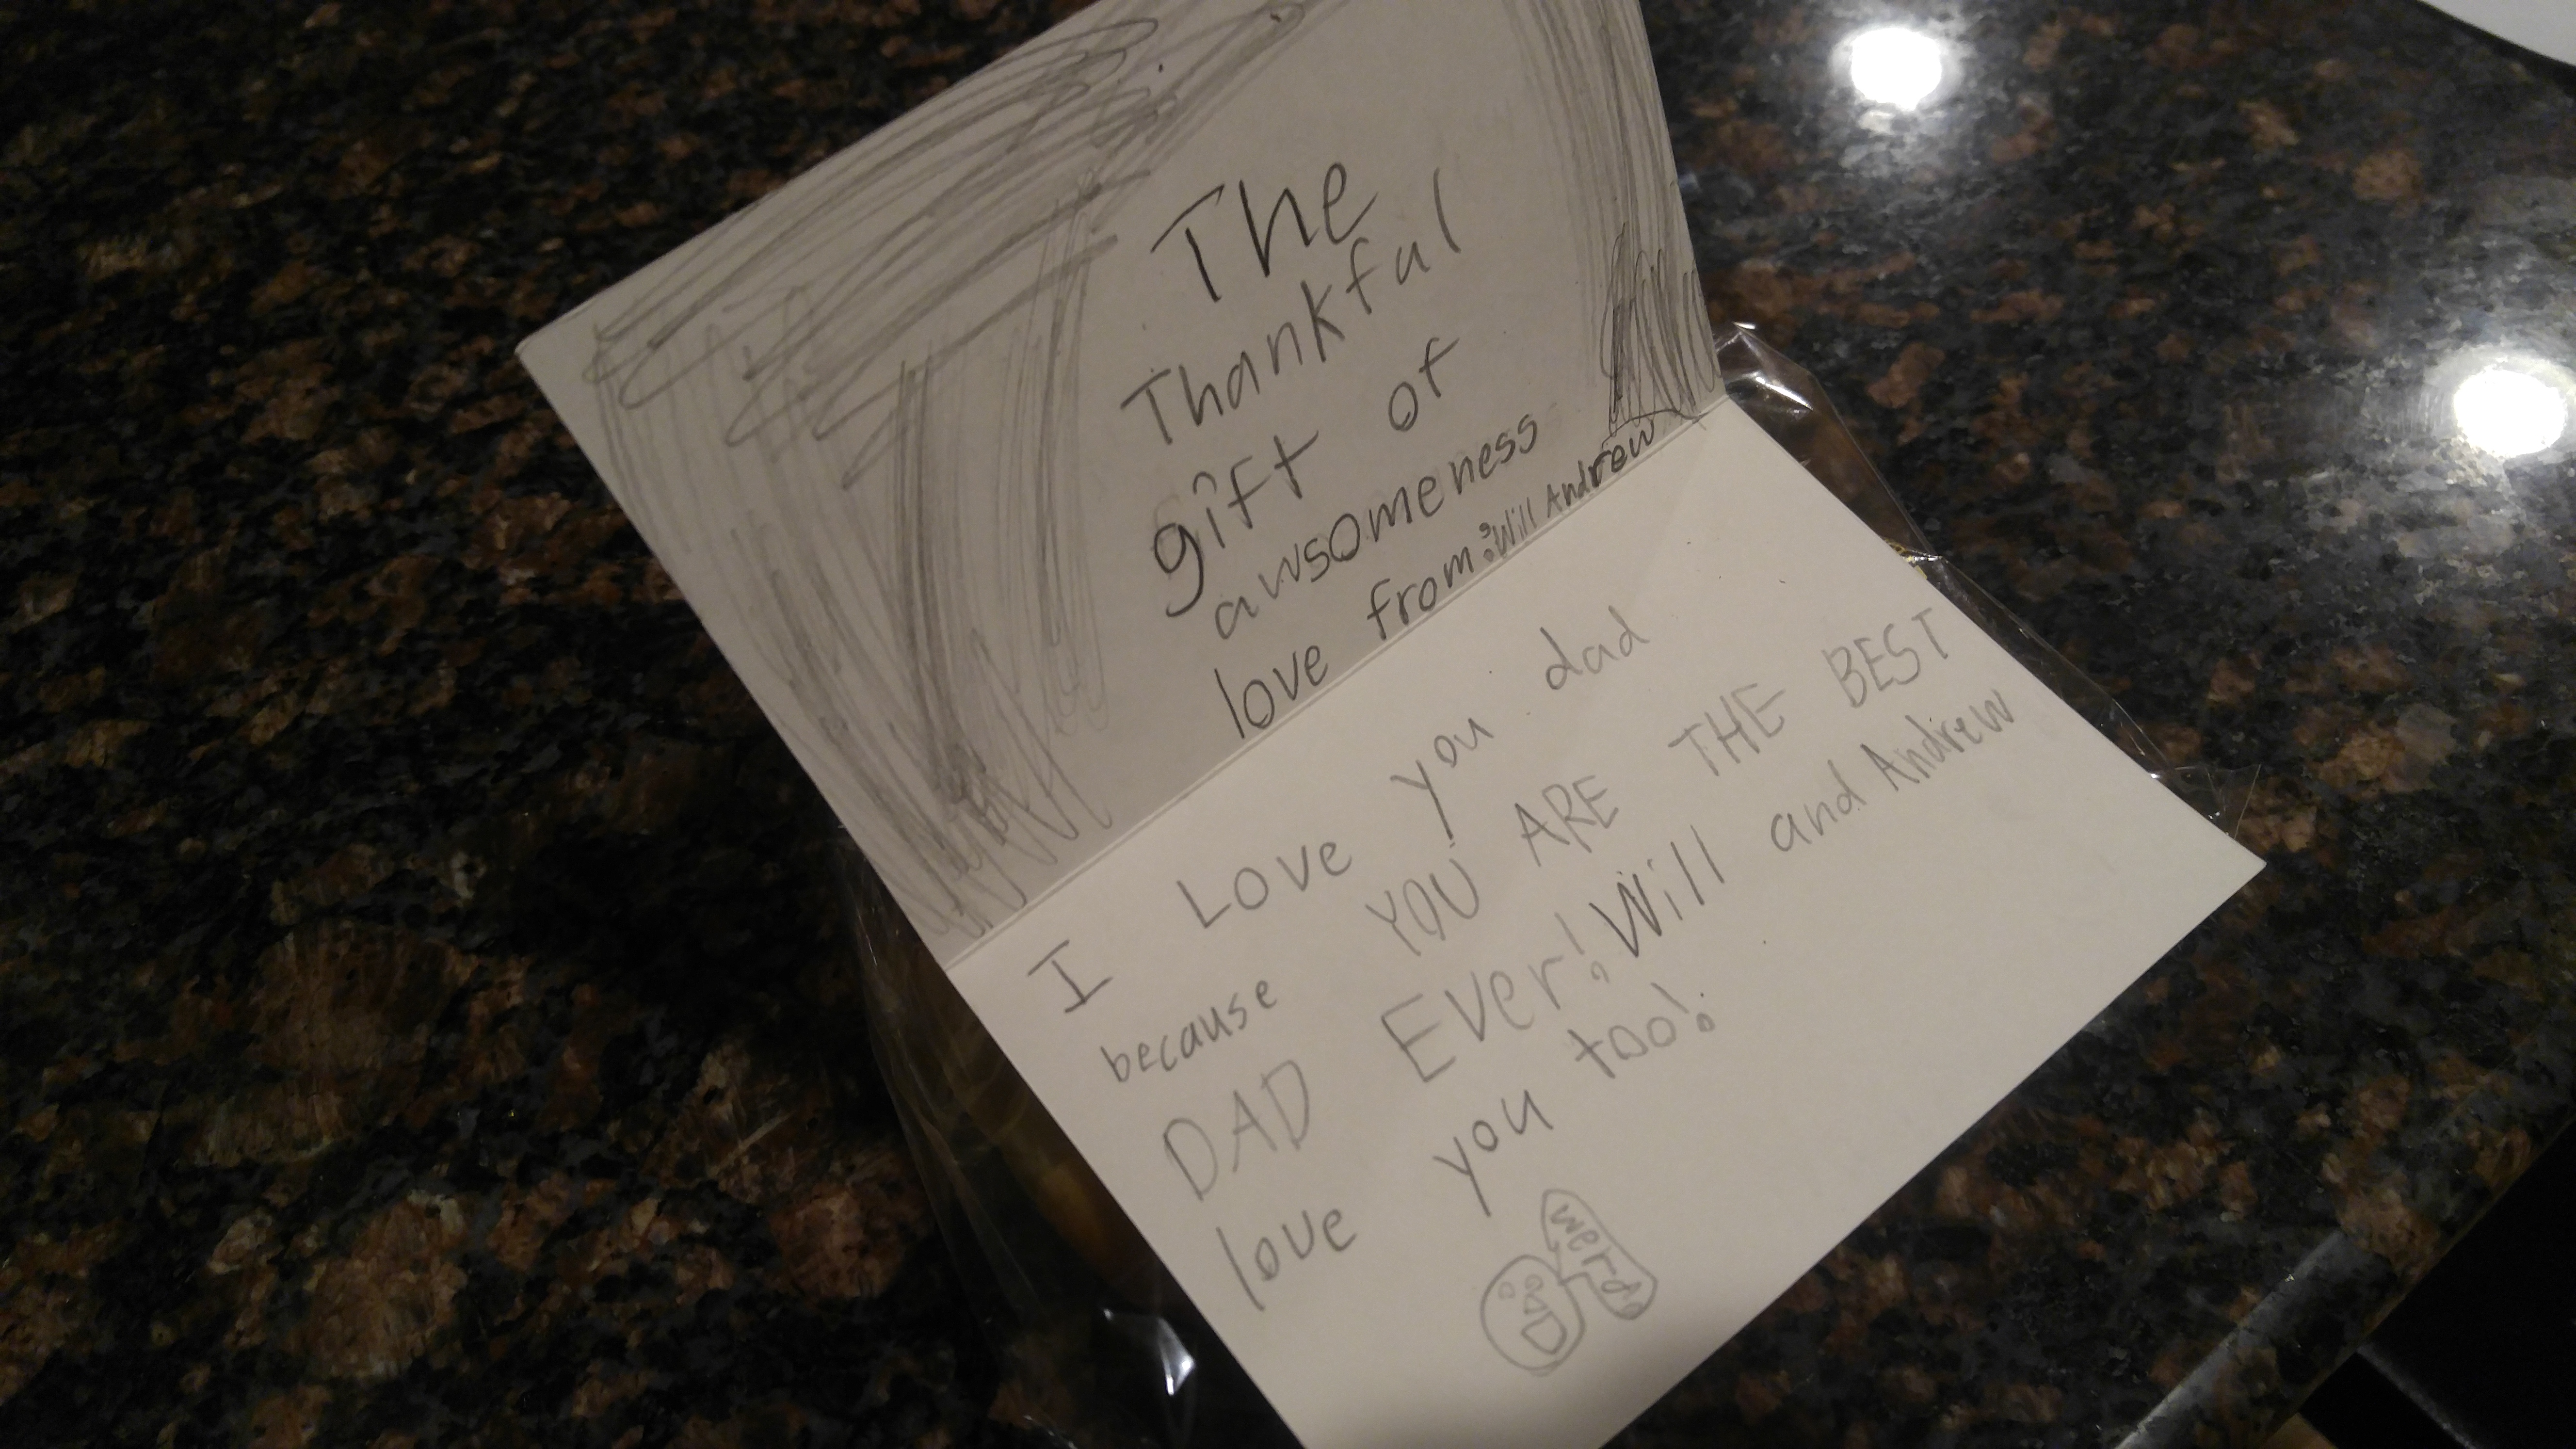 The
Thankful
gift of
awsomeness
love from: Will Andrew
I Love you dad
because YOU ARE THE BEST
DAD Ever! Will and Andrew
love you too!
werdo